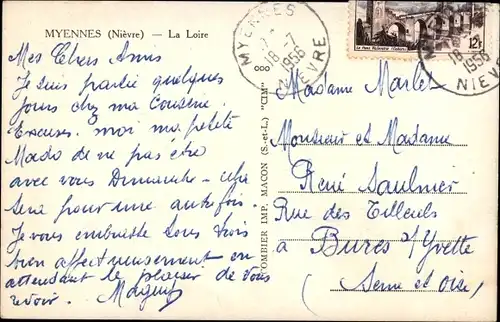 MYENNES (Nièvre) — La Loire
Mes Chers Amis
Je suis partie quelques
jours chez ma Cousine
Excusez-moi ma petite
Mado de ne pas être
avec vous Dimanche - 
sera pour une autre fois.
Je vous embrasse tous trois
bien affectueusement en
attendant le plaisir de vous
revoir.
COMBIER IMP. MACON (S.-et-L.) "CIM"
MYENNES
18-7
1956
NIEVRE
12F
18-7
1956
NIEV
Madame Marlet
Monsieur et Madame
René Saulnier
Rue des Tilleuls
à Bures s/Yvette
(Seine et Oise)